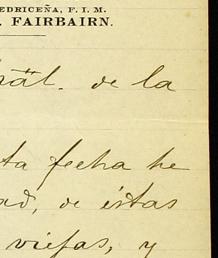 EDRICEÑA, F. I. M.
. FAIRBAIRN.
de la
ta fecha he
ad, de éstas
viejas, y